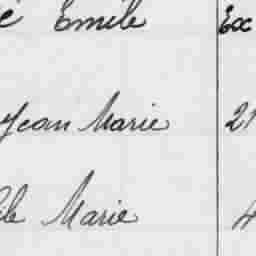 Emile Exc
Jean Marie 21
Marie 4